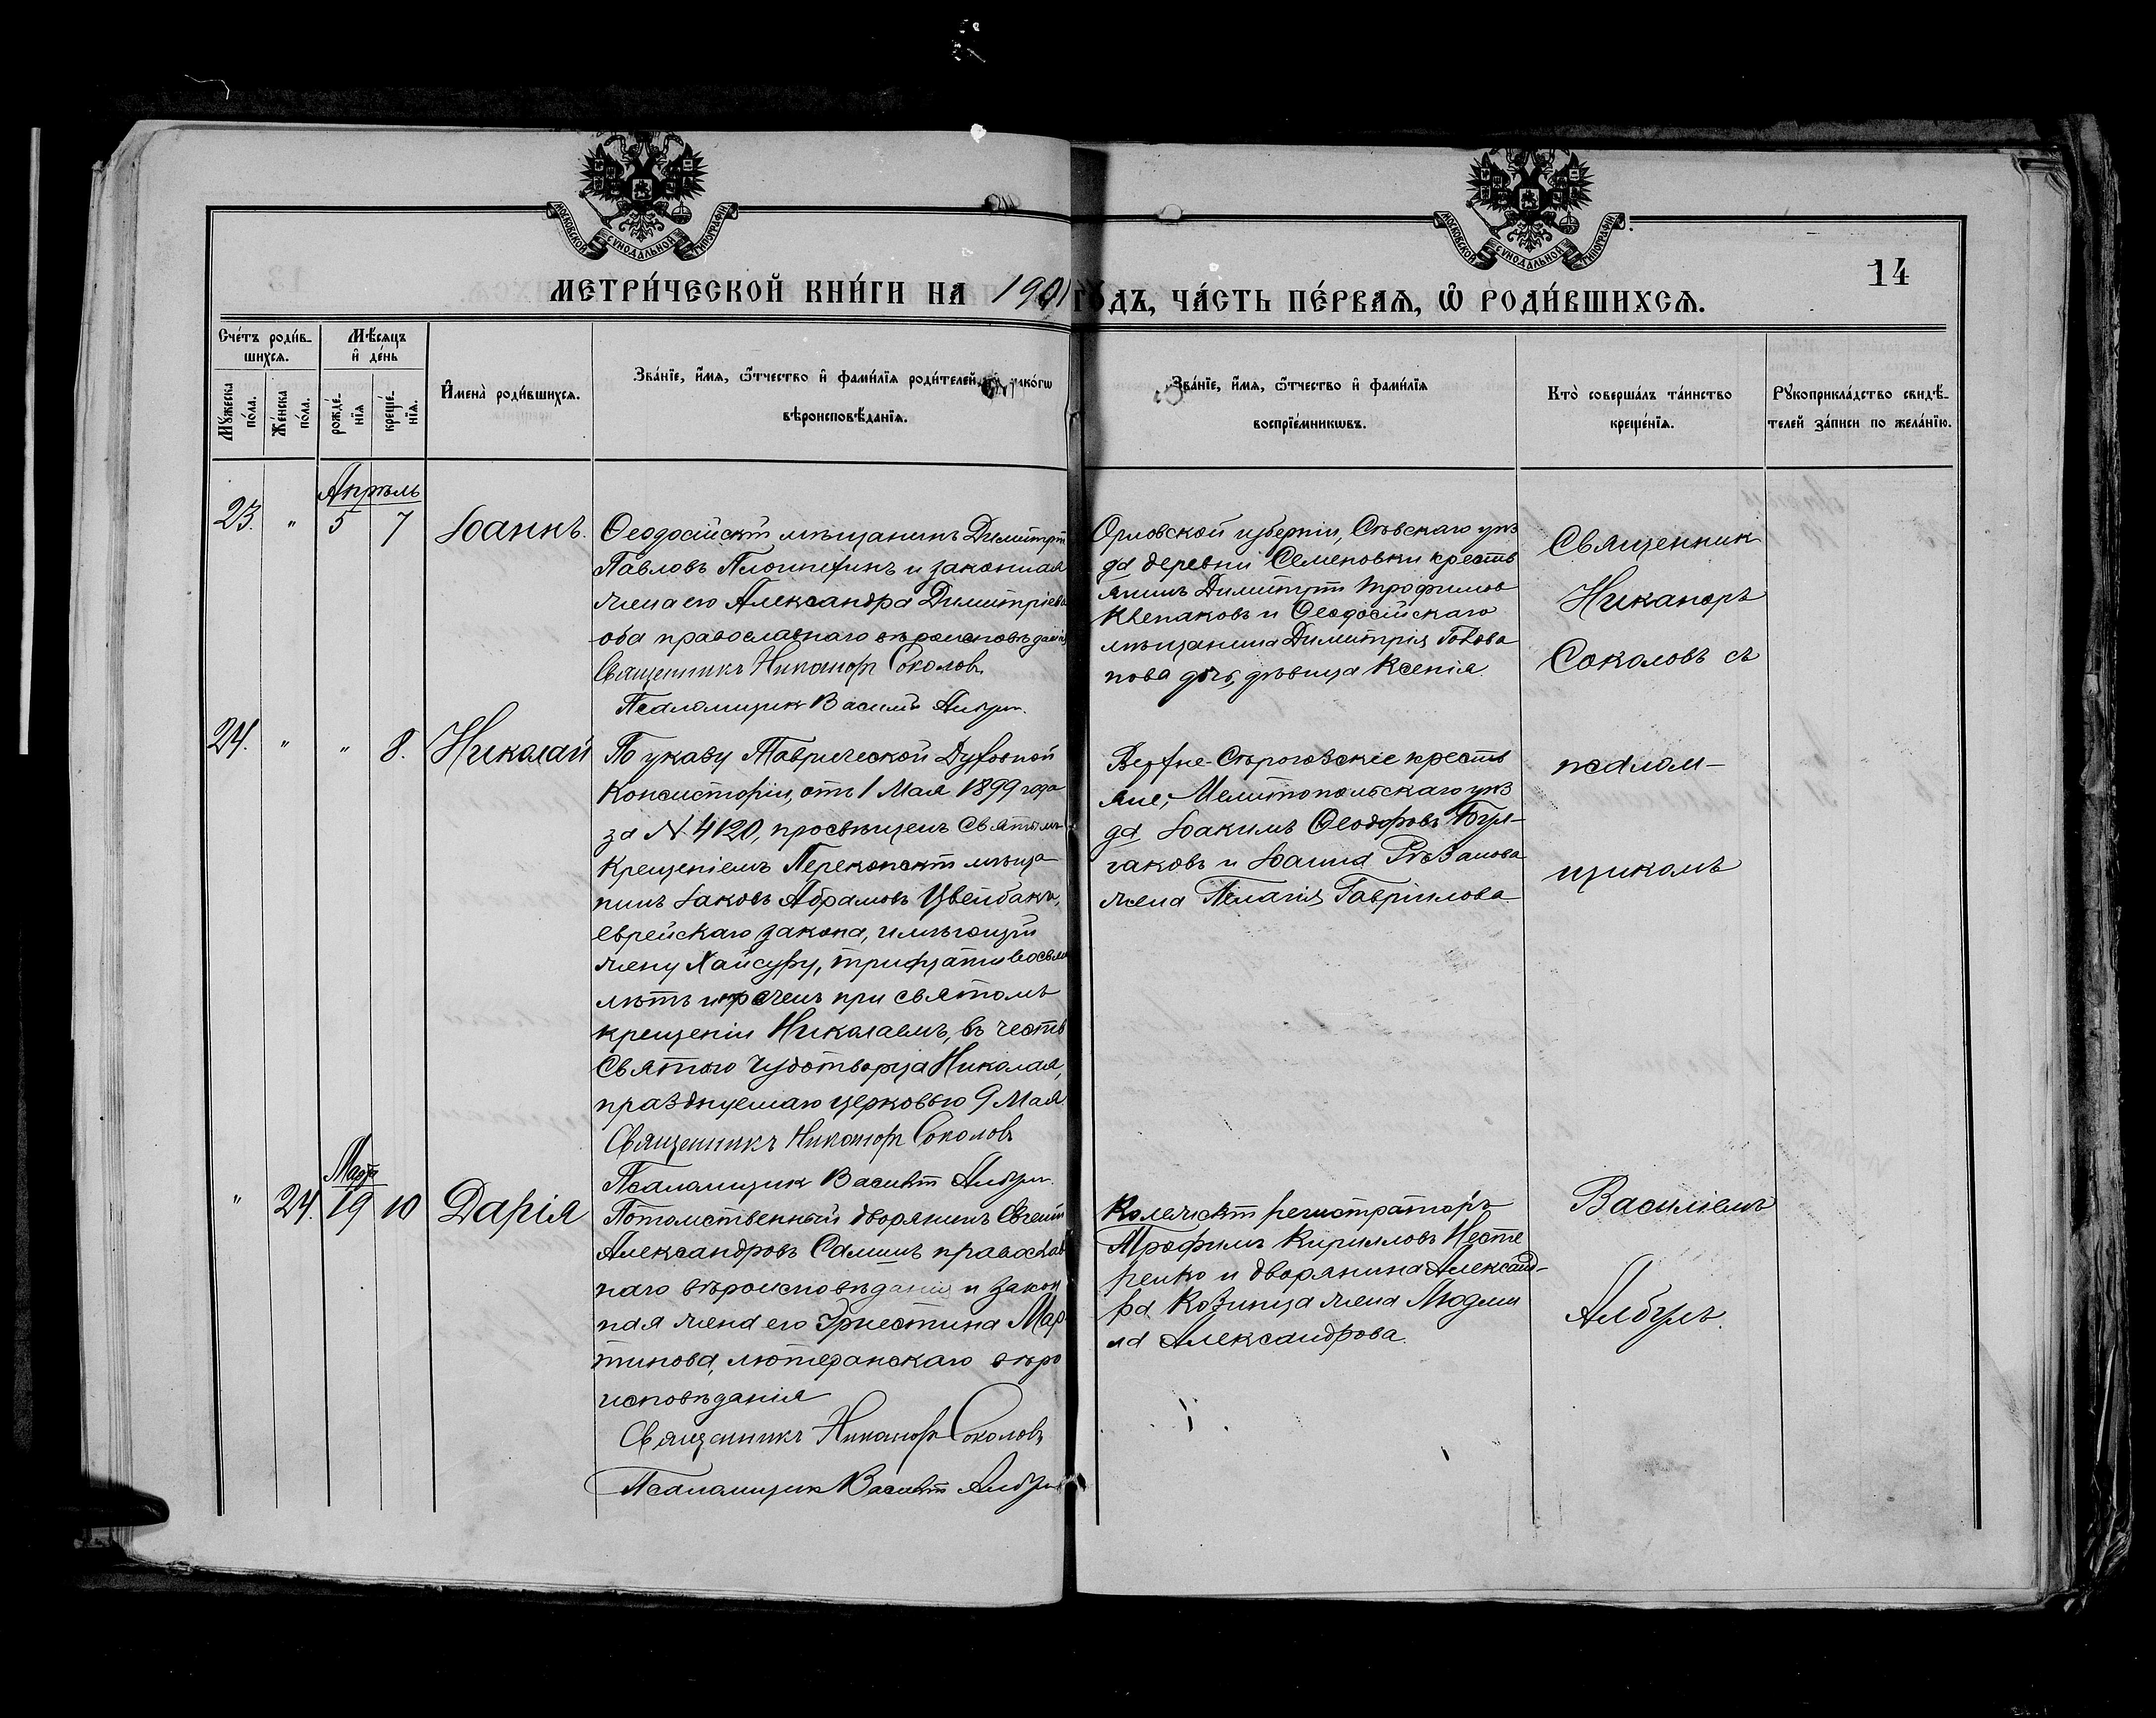 МОСКОВСКОЙ СУНОДАЛЬНОЙ ТИПОГРАФІИ
МОСКОВСКОЙ СУНОДАЛЬНОЙ ТИПОГРАФІИ
14
МЕТРИ́ЧЕСКОЙ КНИ́ГИ НА 1901 ГО́ДЪ, ЧА́СТЬ ПЕ́РВАѦ, Ѡ РОДИ́ВШИХСѦ.
Сче́тъ роди́в-
шихсѧ.
Мꙋжеска по́ла.
Же́нска по́ла.
Мѣ́сѧцъ
и҆ де́нь
рожде́-
нїѧ
креще́-
нїѧ.
И҆мена̀ роди́вшихсѧ.
Зва́нїе, и҆́мѧ, ѻ҆́тчество и҆ фами́лїѧ роди́телей, и҆ како́гѡ
вѣроисповѣ́данїѧ.
Зва́нїе, и҆́мѧ, ѻ҆́тчество и҆ фами́лїѧ
воспрїе́мникѡвъ.
Кто̀ соверша́лъ та́инство
креще́нїѧ.
Рꙋкоприкла́дство свидѣ́-
телей за́писи по жела́нїю.
Апрѣль
23. " 5 7 Іоаннъ.
Ѳеодосійскій мѣщанинъ Димитрій
Павловъ и законная
жена его Александра Димитріева
оба православнаго вѣроисповѣданія
Священникъ Никаноръ Соколовъ
Псаломщикъ Василій Албулъ.
Орловской губерніи, Сѣвскаго уѣз
да деревни Семеновки кресть
янинъ Димитрій Трофимовъ
и Ѳеодосійскаго
мѣщанина Димитрія
нова дочь, дѣвица Ксенія.
Священник
Никаноръ
Соколовъ съ
24. " " 8. Николай
По указу Таврической Духовной
Консисторіи, отъ 1 Мая 1899 года
за N 4120, просвѣщенъ Святымъ
Крещеніемъ Перекопскій мѣща
нинъ Іаковъ Абрамовъ Цвейбакъ,
еврейскаго закона, имѣющій
жену тридцати восьми
лѣтъ и нареченъ при святомъ
крещеніи Николаемъ, въ честь
Святого Чудотворца Николая,
празднуемаго церковью 9 Мая
Священникъ Никаноръ Соколовъ
Псаломщикъ Василій Албулъ.
Верхне-Сѣрогозскіе кресть
яне, Мелитопольскаго уѣз
да Іоакимъ Ѳеодоровъ Бул-
гаковъ и Іоанна Рѣзанова
жена Пелагія Гавріилова
псалом-
щикомъ
Мартъ
" 24. 19 10 Дарія
Потомственный дворянинъ Евгеній
Александровъ православ
наго вѣроисповѣданія и закон
ная жена его Эрнестина Мар
тинова, лютеранскаго вѣро
исповѣданія
Священникъ Никаноръ Соколовъ
Псаломщикъ Василій Албулъ
Колежскій регистраторъ
Трофимъ Кирилловъ Несте
ренко и дворянина Александ-
ра Козинца жена Людми
ла Александрова.
Василіемъ
Албулъ.